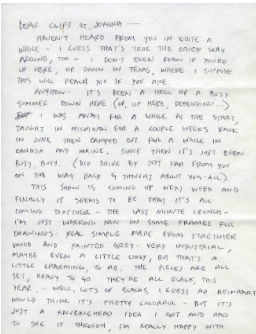 DEAR CLIFF & JOANNA —
HAVEN'T HEARD FROM YOU IN QUITE A
WHILE – I GUESS THAT'S TRUE THE OTHER WAY
AROUND, TOO – I DON'T EVEN KNOW IF YOU'RE
UP HERE, OR DOWN IN TEXAS, WHERE I SUPPOSE
THIS WILL REACH YOU IF YOU ARE.
ANYHOW – IT'S BEEN A HELL OF A BUSY
SUMMER DOWN HERE (OR, UP HERE, DEPENDING –)
I WAS AWAY FOR A WHILE AT THE START,
TAUGHT IN MICHIGAN FOR A COUPLE WEEKS BACK
IN JUNE THEN CAMPED OUT FOR A WHILE IN
CANADA AND MAINE, SINCE THEN IT'S JUST BEEN
BUSY, BUSY. (DID DRIVE BY NOT FAR FROM YOU
ON THE WAY BACK & THOUGHT ABOUT YOU-ALL)
THIS SHOW IS COMING UP NEXT WEEK AND
FINALLY IT SEEMS TO BE THAT IT'S ALL
COMING TOGETHER – THE LAST MINUTE CRUNCH –
I'M JUST WORKING NOW ON SOME FRAMES FOR
DRAWINGS. REAL SIMPLE MADE FROM STRETCHER
WOOD AND PAINTED GREY – VERY INDUSTRIAL,
MAYBE EVEN A LITTLE UGLY, BUT THAT'S A
LITTLE CHARMING, TO ME. THE PIECES ARE ALL
SET, READY TO GO. THEY'RE ALL BLACK THIS
YEAR – WELL, LOTS OF BLACKS, I GUESS AD REINHARDT
WOULD THINK IT'S PRETTY COLORFUL – BUT IT'S
JUST A KNUCKLEHEAD IDEA I GOT AND HAD
TO SEE IT THROUGH, I'M REALLY HAPPY WITH